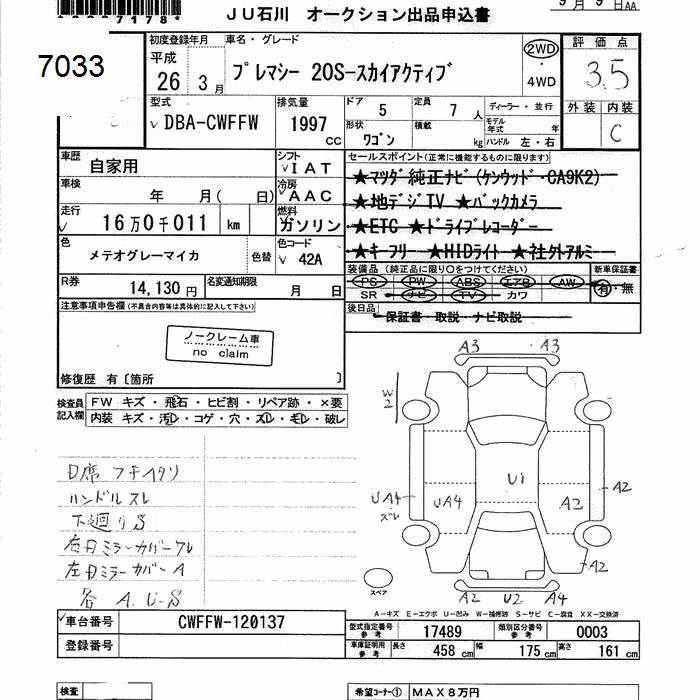 7178
JU石川 オークション出品申込書
9月9日AA
7033
初度登録年月
平成
26 3月
車名・グレード
プレマシー 20S-スカイアクティブ
2WD
4WD
評価点
3.5
外装 内装
C
型式
DBA-CWFFW
排気量
1997
CC
ドア 5
定員 7人
ディーラー・並行
形状
ワゴン
積載
kg
モデル年式 年
ハンドル 左・右
車歴
自家用
シフト
IAT
車検
年 月(日)
冷房
AAC
走行
16万0千011 km
燃料
ガソリン
色
メテオグレーマイカ
色替
色コード
42A
R券
14,130円
名変通知期限
月 日
セールスポイント(正常に機能するものに限ります)
★マツダ純正ナビ(ケンウッド・CA9K2)
★地デジTV ★バックカメラ
★ETC ★ドライブレコーダー
★キーフリー ★HIDライト ★社外アルミ
装備品(純正品に限り○をつけてください)
PS PW ABS エアB AW
SR ナビ TV カワ
新車保証書
有・無
後日品
保証書・取説・ナビ取説
注意事項申告欄(不具合内容等は具体的に記入して下さい)
ノークレーム車
no claim
修復歴 有〔箇所 〕
検査員記入欄
FW キズ・飛石・ヒビ割・リペア跡・×要
内装 キズ・汚レ・コゲ・穴・スレ・モレ・破レ
ハンドルスレ
下廻りS
右Dミラーカバーワレ
左Dミラーカバー A
各 A.U-S
A3 A3
W2
U1
UA4
スレ
UA4
A2
A2
A2
A2 U2 A4
スペア
A-キズ E-エクボ U-凹み W-補修跡 S-サビ C-腐食 XX-交換済
車台番号
CWFFW-120137
登録番号
型式指定番号
参考
17489
類別区分番号
参考
0003
車庫証明用
参考
長さ 458cm 幅 175cm 高さ 161cm
検査
希望コーナー① MAX8万円